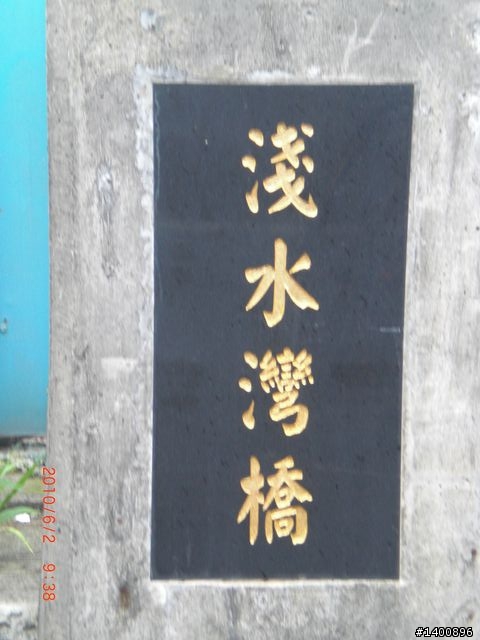 淺水灣橋
2010/6/2 9:38
#1400896